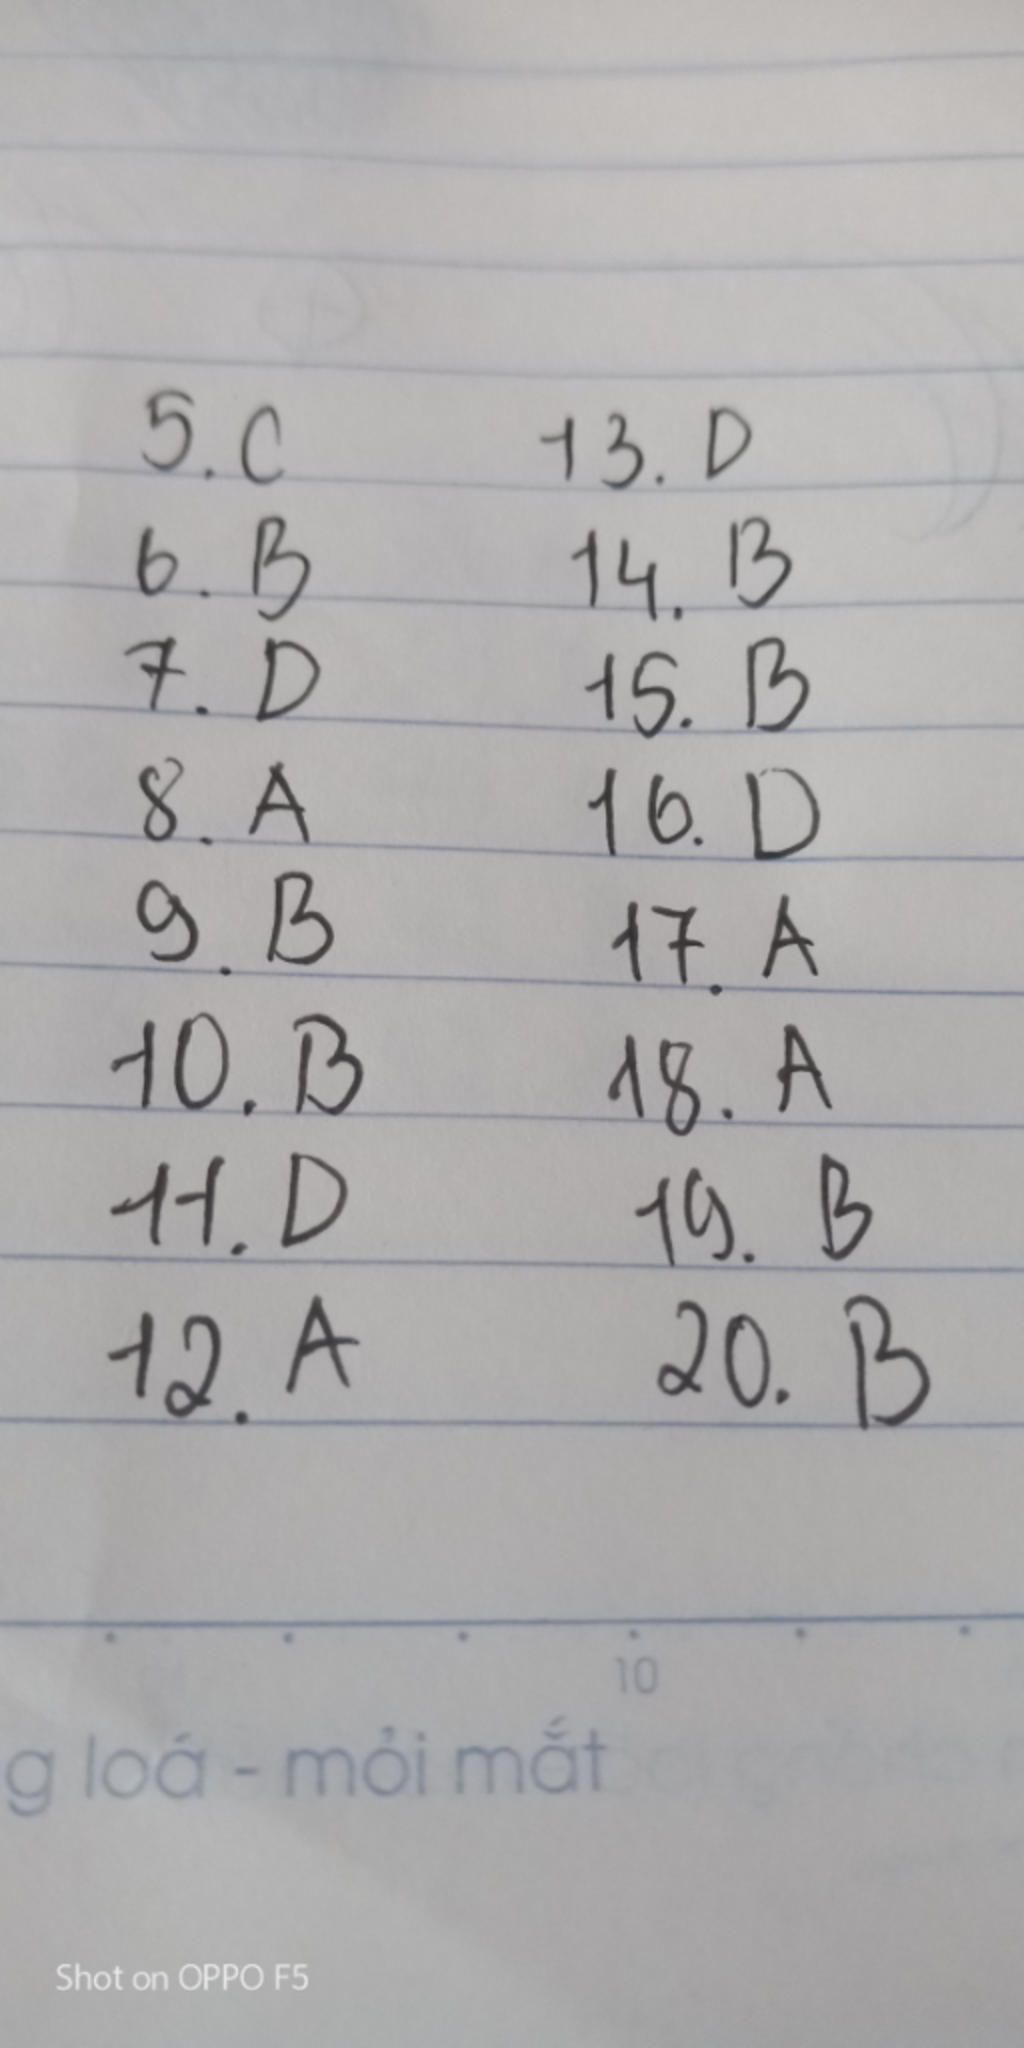 5. C
6. B
7. D
8. A
9. B
10. B
11. D
12. A
13. D
14. B
15. B
16. D
17. A
18. A
19. B
20. B
10
g loá - mỏi mắt
Shot on OPPO F5